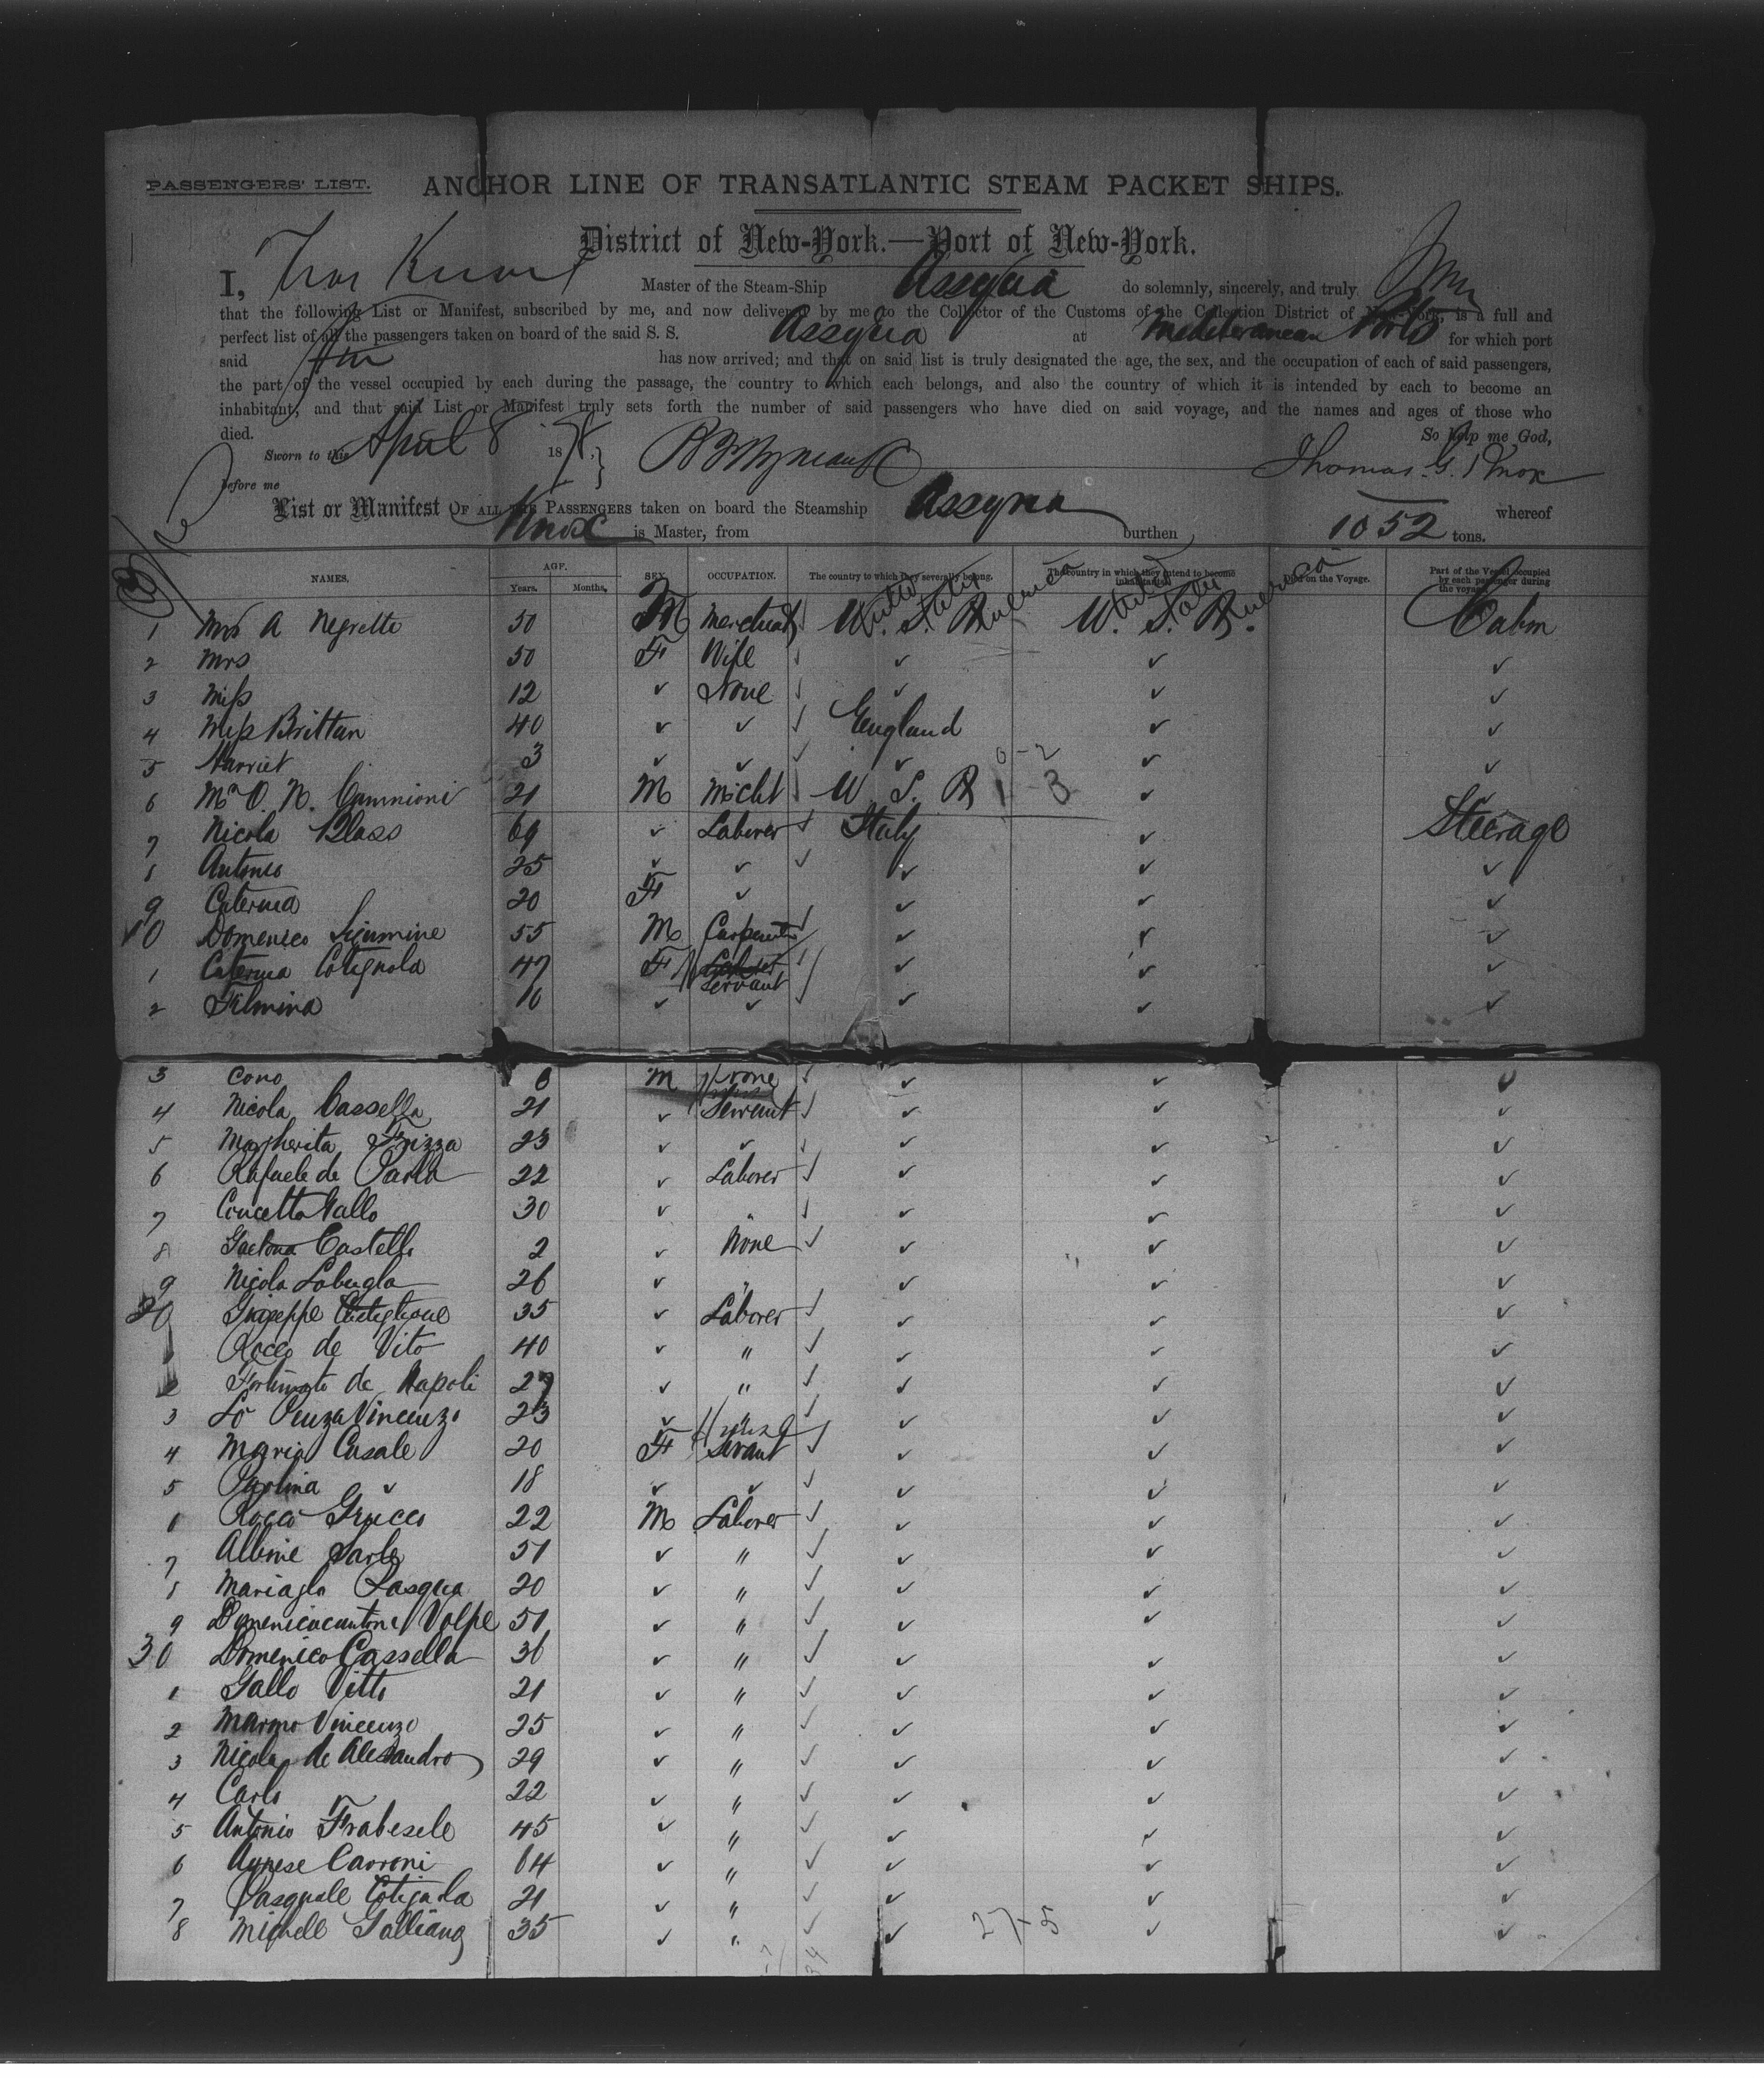 PASSENGERS' LIST.
ANCHOR LINE OF TRANSATLANTIC STEAM PACKET SHIPS.
District of New-York.—Port of New-York.
I, Master of the Steam-Ship Assyria do solemnly, sincerely, and truly
that the following List or Manifest, subscribed by me, and now delivered by me to the Collector of the Customs of the Collection District of New-York, is a full and
perfect list of all the passengers taken on board of the said S. S. Assyria at Mediteranean Ports for which port
said has now arrived; and that on said list is truly designated the age, the sex, and the occupation of each of said passengers,
the part of the vessel occupied by each during the passage, the country to which each belongs, and also the country of which it is intended by each to become an
inhabitant; and that said List or Manifest truly sets forth the number of said passengers who have died on said voyage, and the names and ages of those who
died. So help me God,
Sworn to this April 8 1878, Thomas G. Knox
before me
List or Manifest OF ALL THE PASSENGERS taken on board the Steamship Assyria whereof
Knox is Master, from burthen 1052 tons.
NAMES. AGE. Years. Months. SEX. OCCUPATION. The country to which they severally belong. The country in which they intend to become inhabitants. Died on the Voyage. Part of the Vessel occupied by each passenger during the voyage.
1 A Negretto 50 M Merchant United States America U. S. A. Cabin
2 Mrs 50 F Wife ✓ ✓ ✓
3 Miss 12 ✓ None ✓ ✓ ✓
4 Miss Brittan 40 ✓ ✓ England ✓ ✓
5 Harriet 3 ✓ ✓ ✓ ✓ ✓
6 Mr O. N. 21 M Mcht U. S. A ✓ ✓
7 Nicola Blass 69 ✓ Laborer Italy ✓ Steerage
8 Antonio 25 ✓ ✓ ✓ ✓ ✓
9 Caterina 20 F ✓ ✓ ✓ ✓
10 Domenico 55 M Carpenter ✓ ✓ ✓
1 Caterina Cotignola 47 F Servant ✓ ✓ ✓
2 Filmina 16 ✓ ✓ ✓ ✓ ✓
3 Cono M None ✓ ✓
4 Nicola Cassella 21 ✓ Servant ✓ ✓ ✓
5 Margherita 23 ✓ ✓ ✓ ✓ ✓
6 Rafaele de Paola 22 ✓ Laborer ✓ ✓ ✓
7 Concetta Gallo 30 ✓ " ✓ ✓ ✓
8 Gaetona Castello 2 ✓ None ✓ ✓ ✓
9 Nicola Labugla 26 ✓ " ✓ ✓ ✓
20 Guiseppe 35 ✓ Laborer ✓ ✓ ✓
1 Rocco de Vito 40 ✓ " ✓ ✓ ✓
2 Fortunato de Napoli 27 ✓ " ✓ ✓ ✓
3 Lo Penza Vincenzo 23 ✓ " ✓ ✓ ✓
4 Maria Casale 20 F Servant ✓ ✓ ✓
5 Carolina ✓ 18 ✓ ✓ ✓ ✓ ✓
6 Rocco Grucco 22 M Laborer ✓ ✓ ✓
7 Albinie Sarle 51 ✓ " ✓ ✓ ✓
8 Pasqua 20 ✓ " ✓ ✓ ✓
9 Volpe 51 ✓ " ✓ ✓ ✓
30 Domenico Cassella 36 ✓ " ✓ ✓ ✓
1 Gallo Vitto 21 ✓ " ✓ ✓ ✓
2 Marmo Vincenzo 25 ✓ " ✓ ✓ ✓
3 Nicola de Alesandro 29 ✓ " ✓ ✓ ✓
4 Carlo 22 ✓ " ✓ ✓ ✓
5 Antonio Frabesele 45 ✓ " ✓ ✓ ✓
6 Agnese Carroni 64 ✓ " ✓ ✓ ✓
7 Pasquale 21 ✓ " ✓ ✓ ✓
8 Michell Galliano 35 ✓ " ✓ 27-5 ✓ ✓